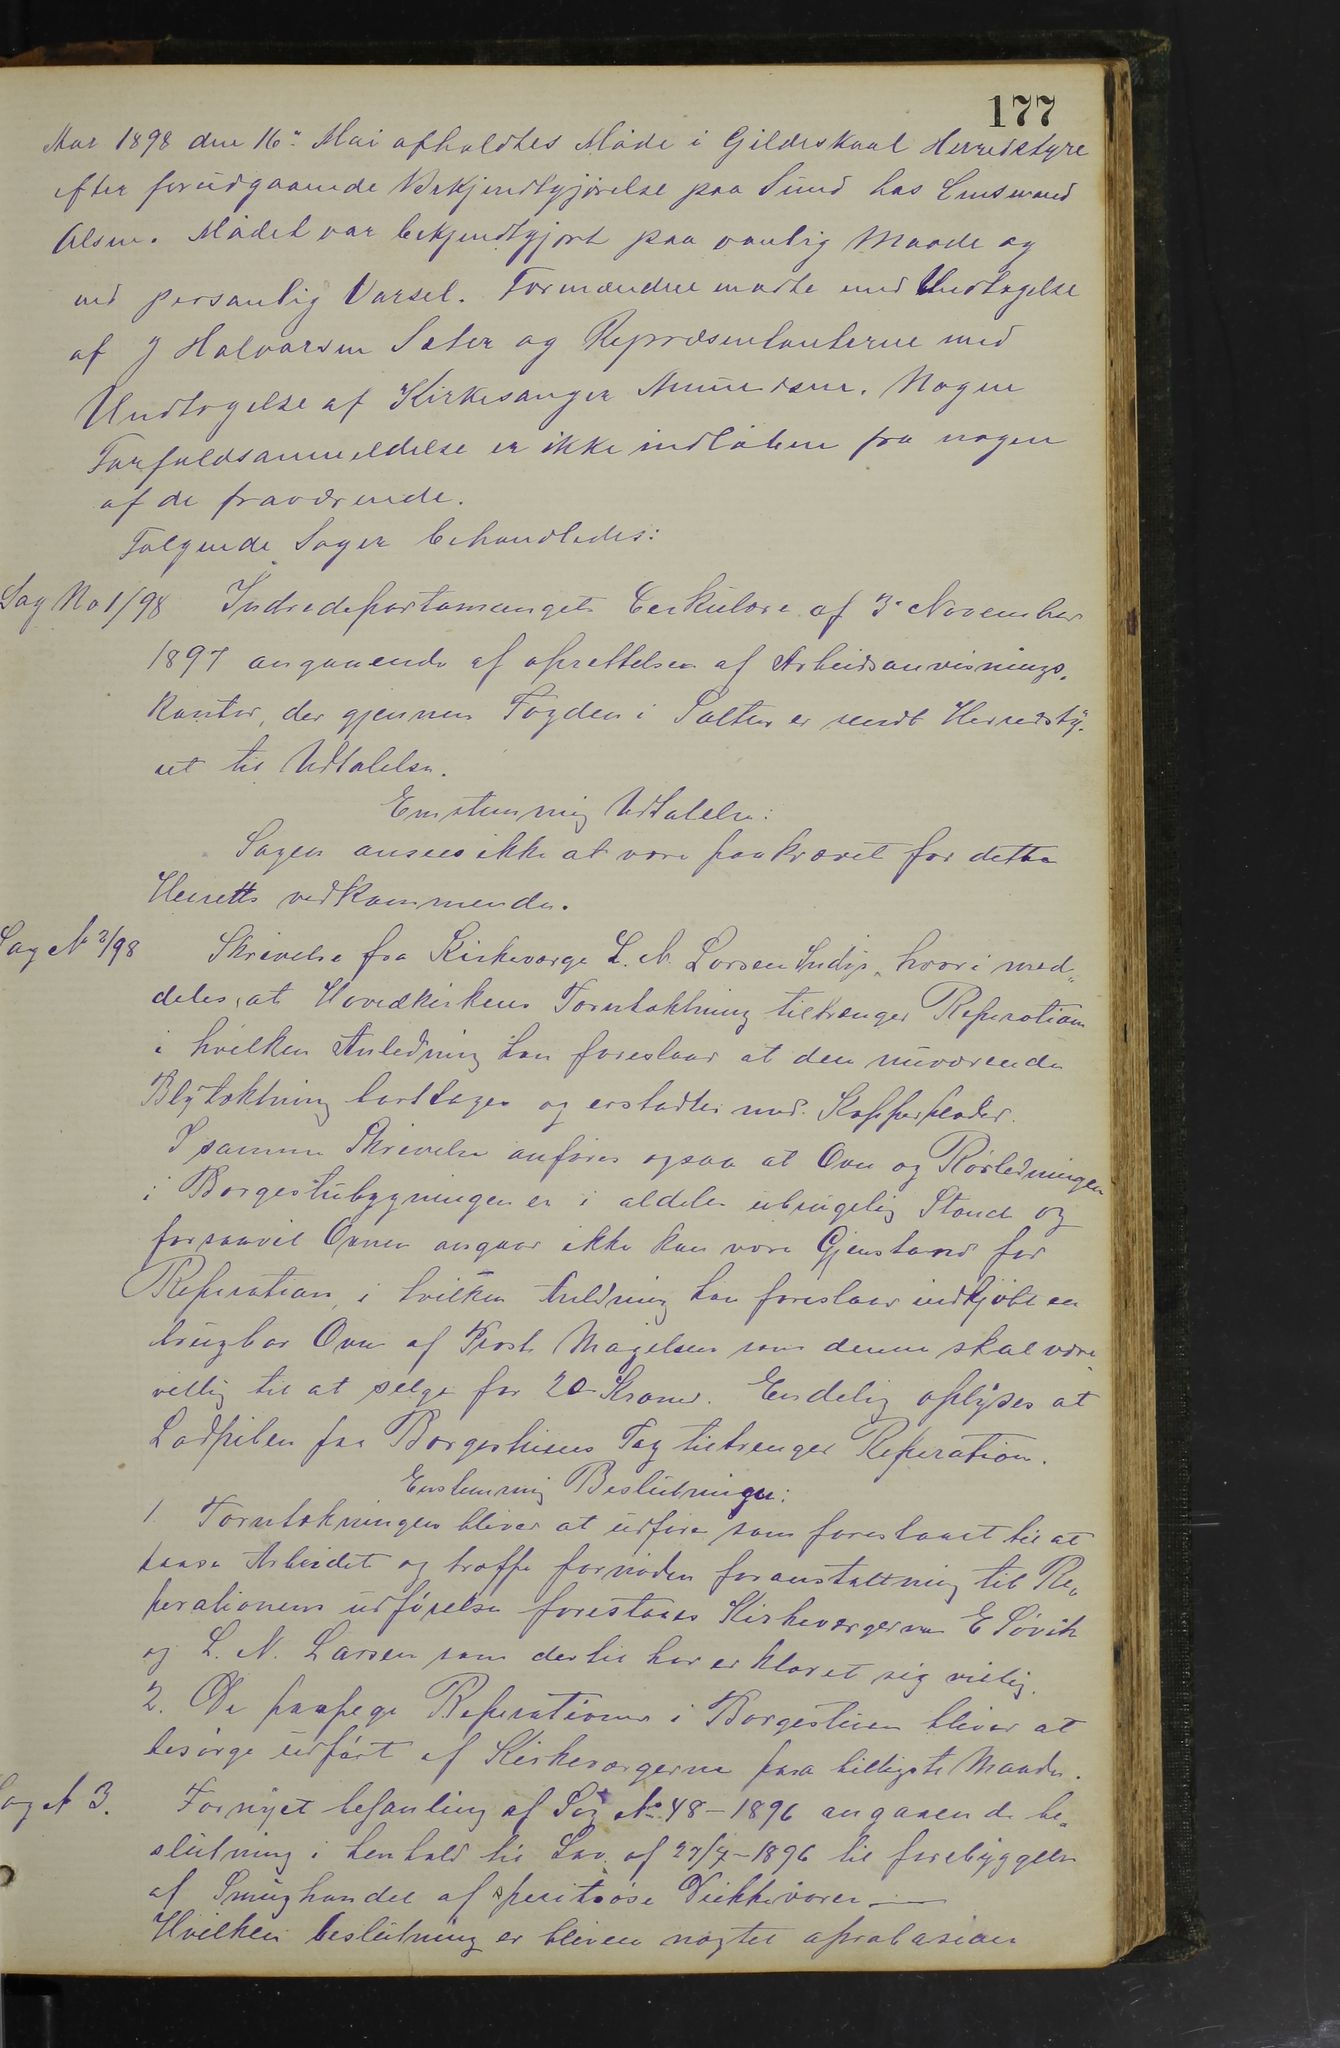 177
Aar 1898 den 16de Mai afholdtes Møde i Gildeskaal Herredstyre
efter forudgaaende Bekjendtgjørelse paa Sund hos Enkemand
Olsen. Mødet var bekjendtgjort paa vanlig Maade og
ved personlig Varsel. Formændene mødte med Undtagelse
af J Halvorsen Sæter og Repræsentanterne med
Undtagelse af Kirkesanger Amundsen. Nogen
Forfaldsanmeldelse er ikke indløben fra nogen
af de fraværende.
Følgende Sager behandledes:
Sag No 1/98 Indredepartamenget Cirkulære af 3. November
1897 angaaende af oprettelsen af Arbeidsanvisnings,
kontor, der gjennem Fogden i Salten er sendt Herredsty-
ret til Udtalelse.
Enstemmig Udtalelse:
Sagen ansees ikke at være paakrævet for dette
Herrets vedkommende.
Sag No 2/98 Skrivelse fra Kirkeværge L. N. Larsen Indyr, hvori med-
deles, at Hovedkirkens Tarntækning tiltrænger Reperation
i hvilken Anledning han foreslaar at den nuværende
Blytækning borttages og erstattes med Kopperplader.
I samme Skrivelse anføres ogsaa at Ovn og Rørledningen
i Borgestubygningen er i aldeles ubrugelig Stand og
forsaavit Ovnen angaar ikke kan være Gjenstand for
Reperation, i hvilken Anledning han foreslaar indkjøbt en
brugbar Ovn af Prost Magelsen som denne skal være
villig til at selge for 20 Kroner. Endelig oplyses at
Lodpiben paa Borgestuens Tag tiltrenger Reperation.
Enstemmig Beslutninge:
1. Tarntækningen bliver at udføre som foreslaaet til at
paase Arbeidet og træffe fornøden foranstaltning til Re-
perationens udførelse forestaaes Kirkeværgerne E Søvik
og L. N. Larsen som dertil har erklæret sig villig.
2. De paapege Reperationer i Borgestuen bliver at
besørge udført af Kirkeværgerne paa billigste Maade.
Sag N 3. Fornyet behanling af Sag No 48 - 1896 angaaende be-
slutning i henhold til Lov af 27/7 - 1896 til forebyggelse
af Smughandel af sperituøse Drikkevarer —
Hvilken beslutning er bleven nægtet aprobasion